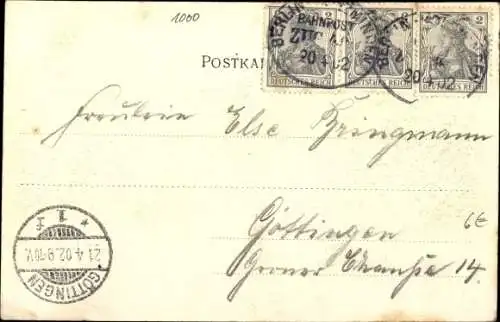 1000
BERLIN
BAHNPOST
ZUG
20 4 02
2 2
DEUTSCHES REICH DEUTSCHES REICH DEUTSCHES REICH
POSTKA
Fräulein Else Bringmann
Göttingen
Groner Chaussée 14.
6€
* 1 *
21.4.02.9-10V.
GÖTTINGEN